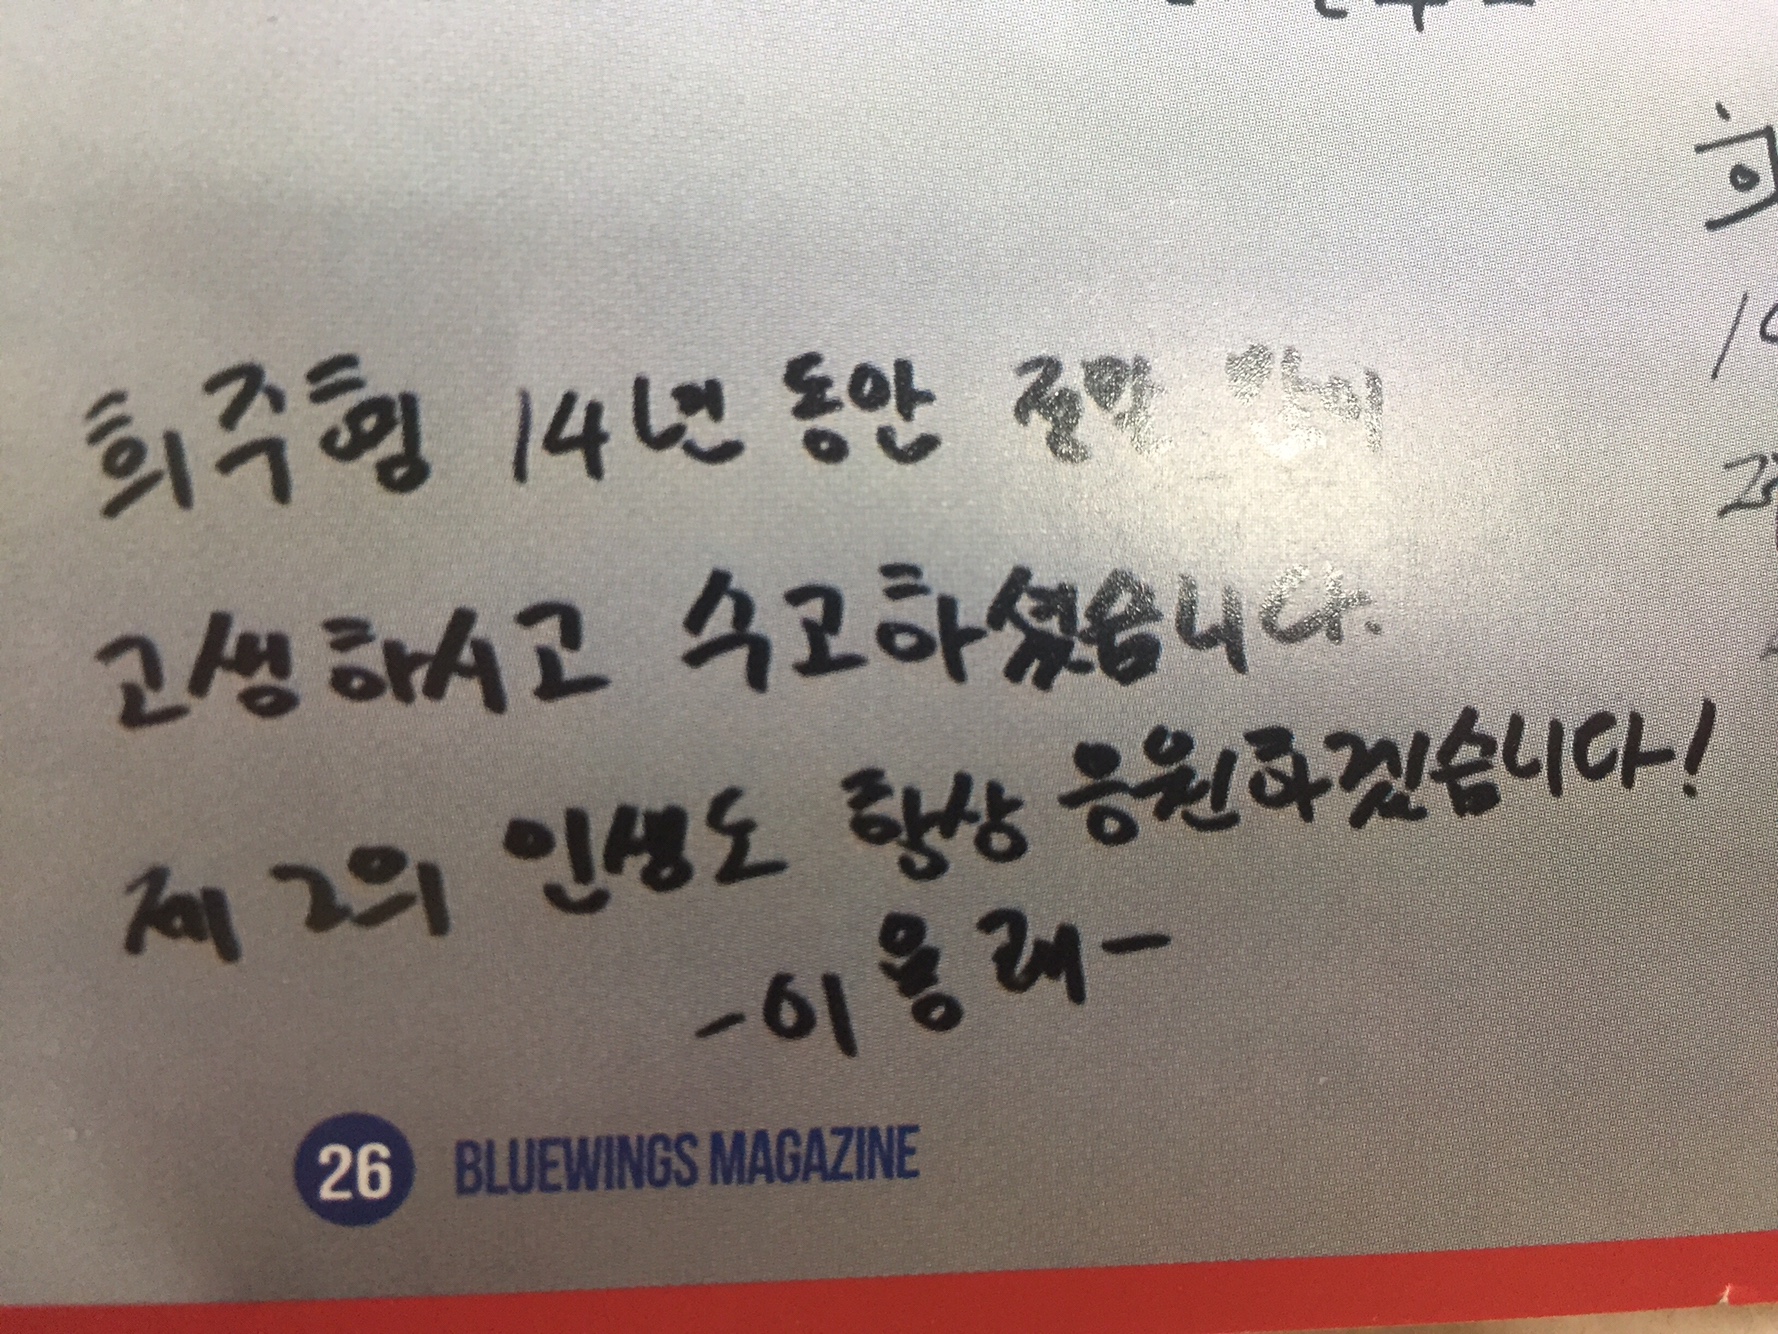 희주형 14년 동안 정말 많이
고생하시고 수고하셨습니다.
제 2의 인생도 항상 응원하겠습니다!
-이용래-
26 BLUEWINGS MAGAZINE